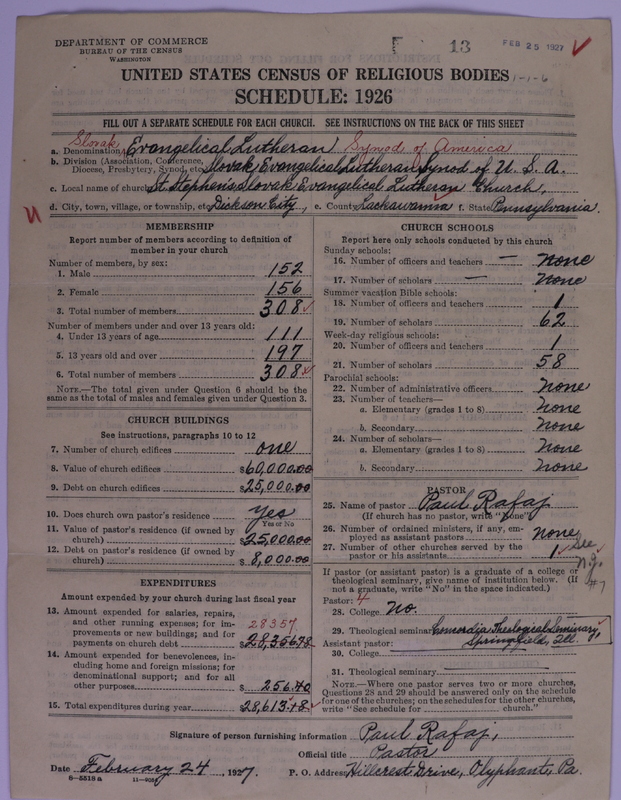 DEPARTMENT OF COMMERCE
BUREAU OF THE CENSUS
WASHINGTON
13
FEB 25 1927
1-1-6
UNITED STATES CENSUS OF RELIGIOUS BODIES
SCHEDULE: 1926
FILL OUT A SEPARATE SCHEDULE FOR EACH CHURCH. SEE INSTRUCTIONS ON THE BACK OF THIS SHEET
a. Denomination Slovak Evangelical Lutheran Synod of America
b. Division (Association, Conference, Diocese, Presbytery, Synod, etc. Slovak Evangelical Lutheran Synod of U. S. A.
c. Local name of church St. Stephens Slovak Evangelical Lutheran Church,
d. City, town, village, or township, etc. Dickson City, e. County Lackawanna f. State Pennsylvania.
MEMBERSHIP
Report number of members according to definition of
member in your church
Number of members, by sex:
1. Male 152
2. Female 156
3. Total number of members 308
Number of members under and over 13 years old:
4. Under 13 years of age 111
5. 13 years old and over 197
6. Total number of members 308
NOTE.—The total given under Question 6 should be
same as the total of males and females given under Question 3.
CHURCH BUILDINGS
See instructions, paragraphs 10 to 12
7. Number of church edifices one
8. Value of church edifices $60,000.00
9. Debt on church edifices $25,000.00
10. Does church own pastor's residence yes
Yes or No
11. Value of pastor's residence (if owned by
church) $25,000.00
12. Debt on pastor's residence (if owned by
church) $8,000.00
EXPENDITURES
Amount expended by your church during last fiscal year
13. Amount expended for salaries, repairs,
and other running expenses; for im-
provements or new buildings; and for
payments on church debt 28357 $28,356.78
14. Amount expended for benevolences, in-
cluding home and foreign missions; for
denominational support; and for all
other purposes $256.40
15. Total expenditures during year $28,613.18
CHURCH SCHOOLS
Report here only schools conducted by this church
Sunday schools:
16. Number of officers and teachers — none
17. Number of scholars — none
Summer vacation Bible schools:
18. Number of officers and teachers 1
19. Number of scholars 62
Week-day religious schools:
20. Number of officers and teachers 1
21. Number of scholars 58
Parochial schools:
22. Number of administrative officers none
23. Number of teachers—
a. Elementary (grades 1 to 8) none
b. Secondary none
24. Number of scholars—
a. Elementary (grades 1 to 8) none
b. Secondary none
PASTOR
25. Name of pastor Paul Rafaj
(If church has no pastor, write "None")
26. Number of ordained ministers, if any, em-
ployed as assistant pastors none
27. Number of other churches served by the
pastor or his assistants 1 See
N.J.
#7
If pastor (or assistant pastor) is a graduate of a college or
theological seminary, give name of institution below. (If
not a graduate, write "No" in the space indicated.)
Pastor: 4
28. College No.
29. Theological seminary Concordia Theological Seminary,
Springfield, Ill.
Assistant pastor:
30. College
31. Theological seminary
NOTE.—Where one pastor serves two or more churches,
Questions 28 and 29 should be answered only on the schedule
for one of the churches; on the schedules for the other churches,
write "See schedule for church."
Signature of person furnishing information Paul Rafaj,
Official title Pastor
Date February 24, 1927. P. O. Address Hillcrest Drive, Olyphant, Pa.
8-5518 a